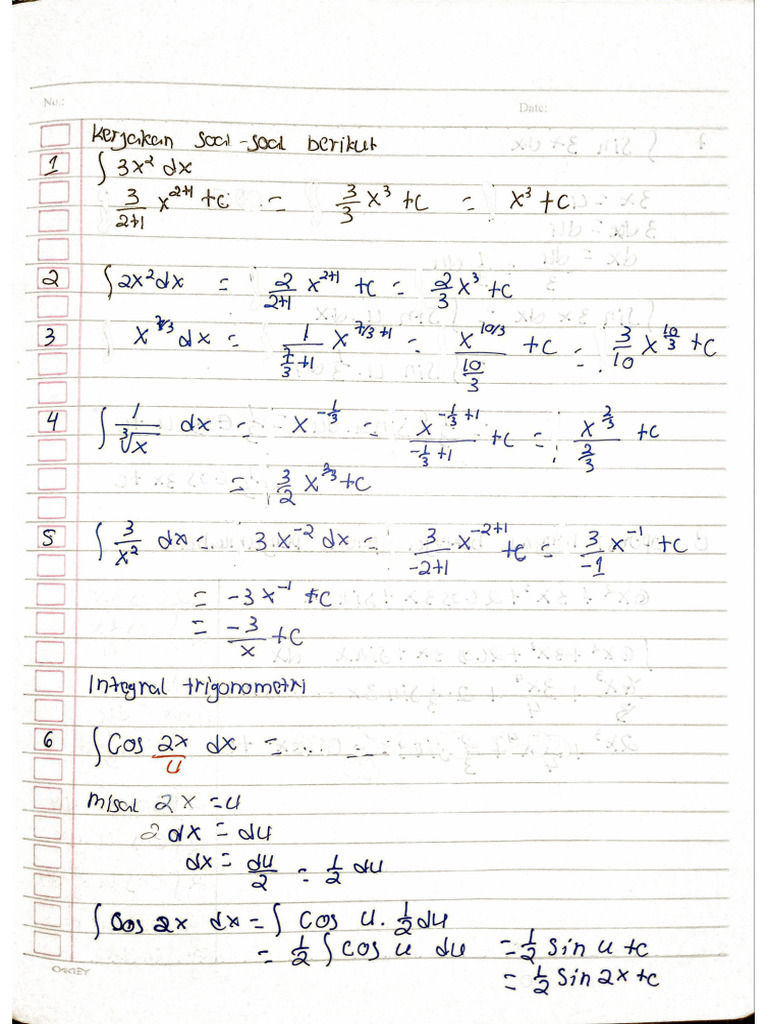 No.: Date:
Kerjakan soal-soal berikut
1 ∫ 3x² dx
3/(2+1) x²⁺¹ + C = 3/3 x³ + C = x³ + C
2 ∫ 2x² dx = 2/(2+1) x²⁺¹ + C = 2/3 x³ + C
3 x^(7/3) dx = 1/(7/3+1) x^(7/3+1) = x^(10/3)/(10/3) + C = 3/10 x^(10/3) + C
4 ∫ 1/∛x dx = x^(-1/3) = x^(-1/3+1)/(-1/3+1) + C = x^(2/3)/(2/3) + C
= 3/2 x^(2/3) + C
5 ∫ 3/x² dx = 3x⁻² dx = 3/(-2+1) x⁻²⁺¹ + C = 3/-1 x⁻¹ + C
= -3x⁻¹ + C
= -3/x + C
Integral trigonometri
6 ∫ Cos 2x dx =
u
misal 2x = u
2 dx = du
dx = du/2 = 1/2 du
∫ Cos 2x dx = ∫ Cos u. 1/2 du
= 1/2 ∫ cos u du = 1/2 Sin u + C
= 1/2 Sin 2x + C